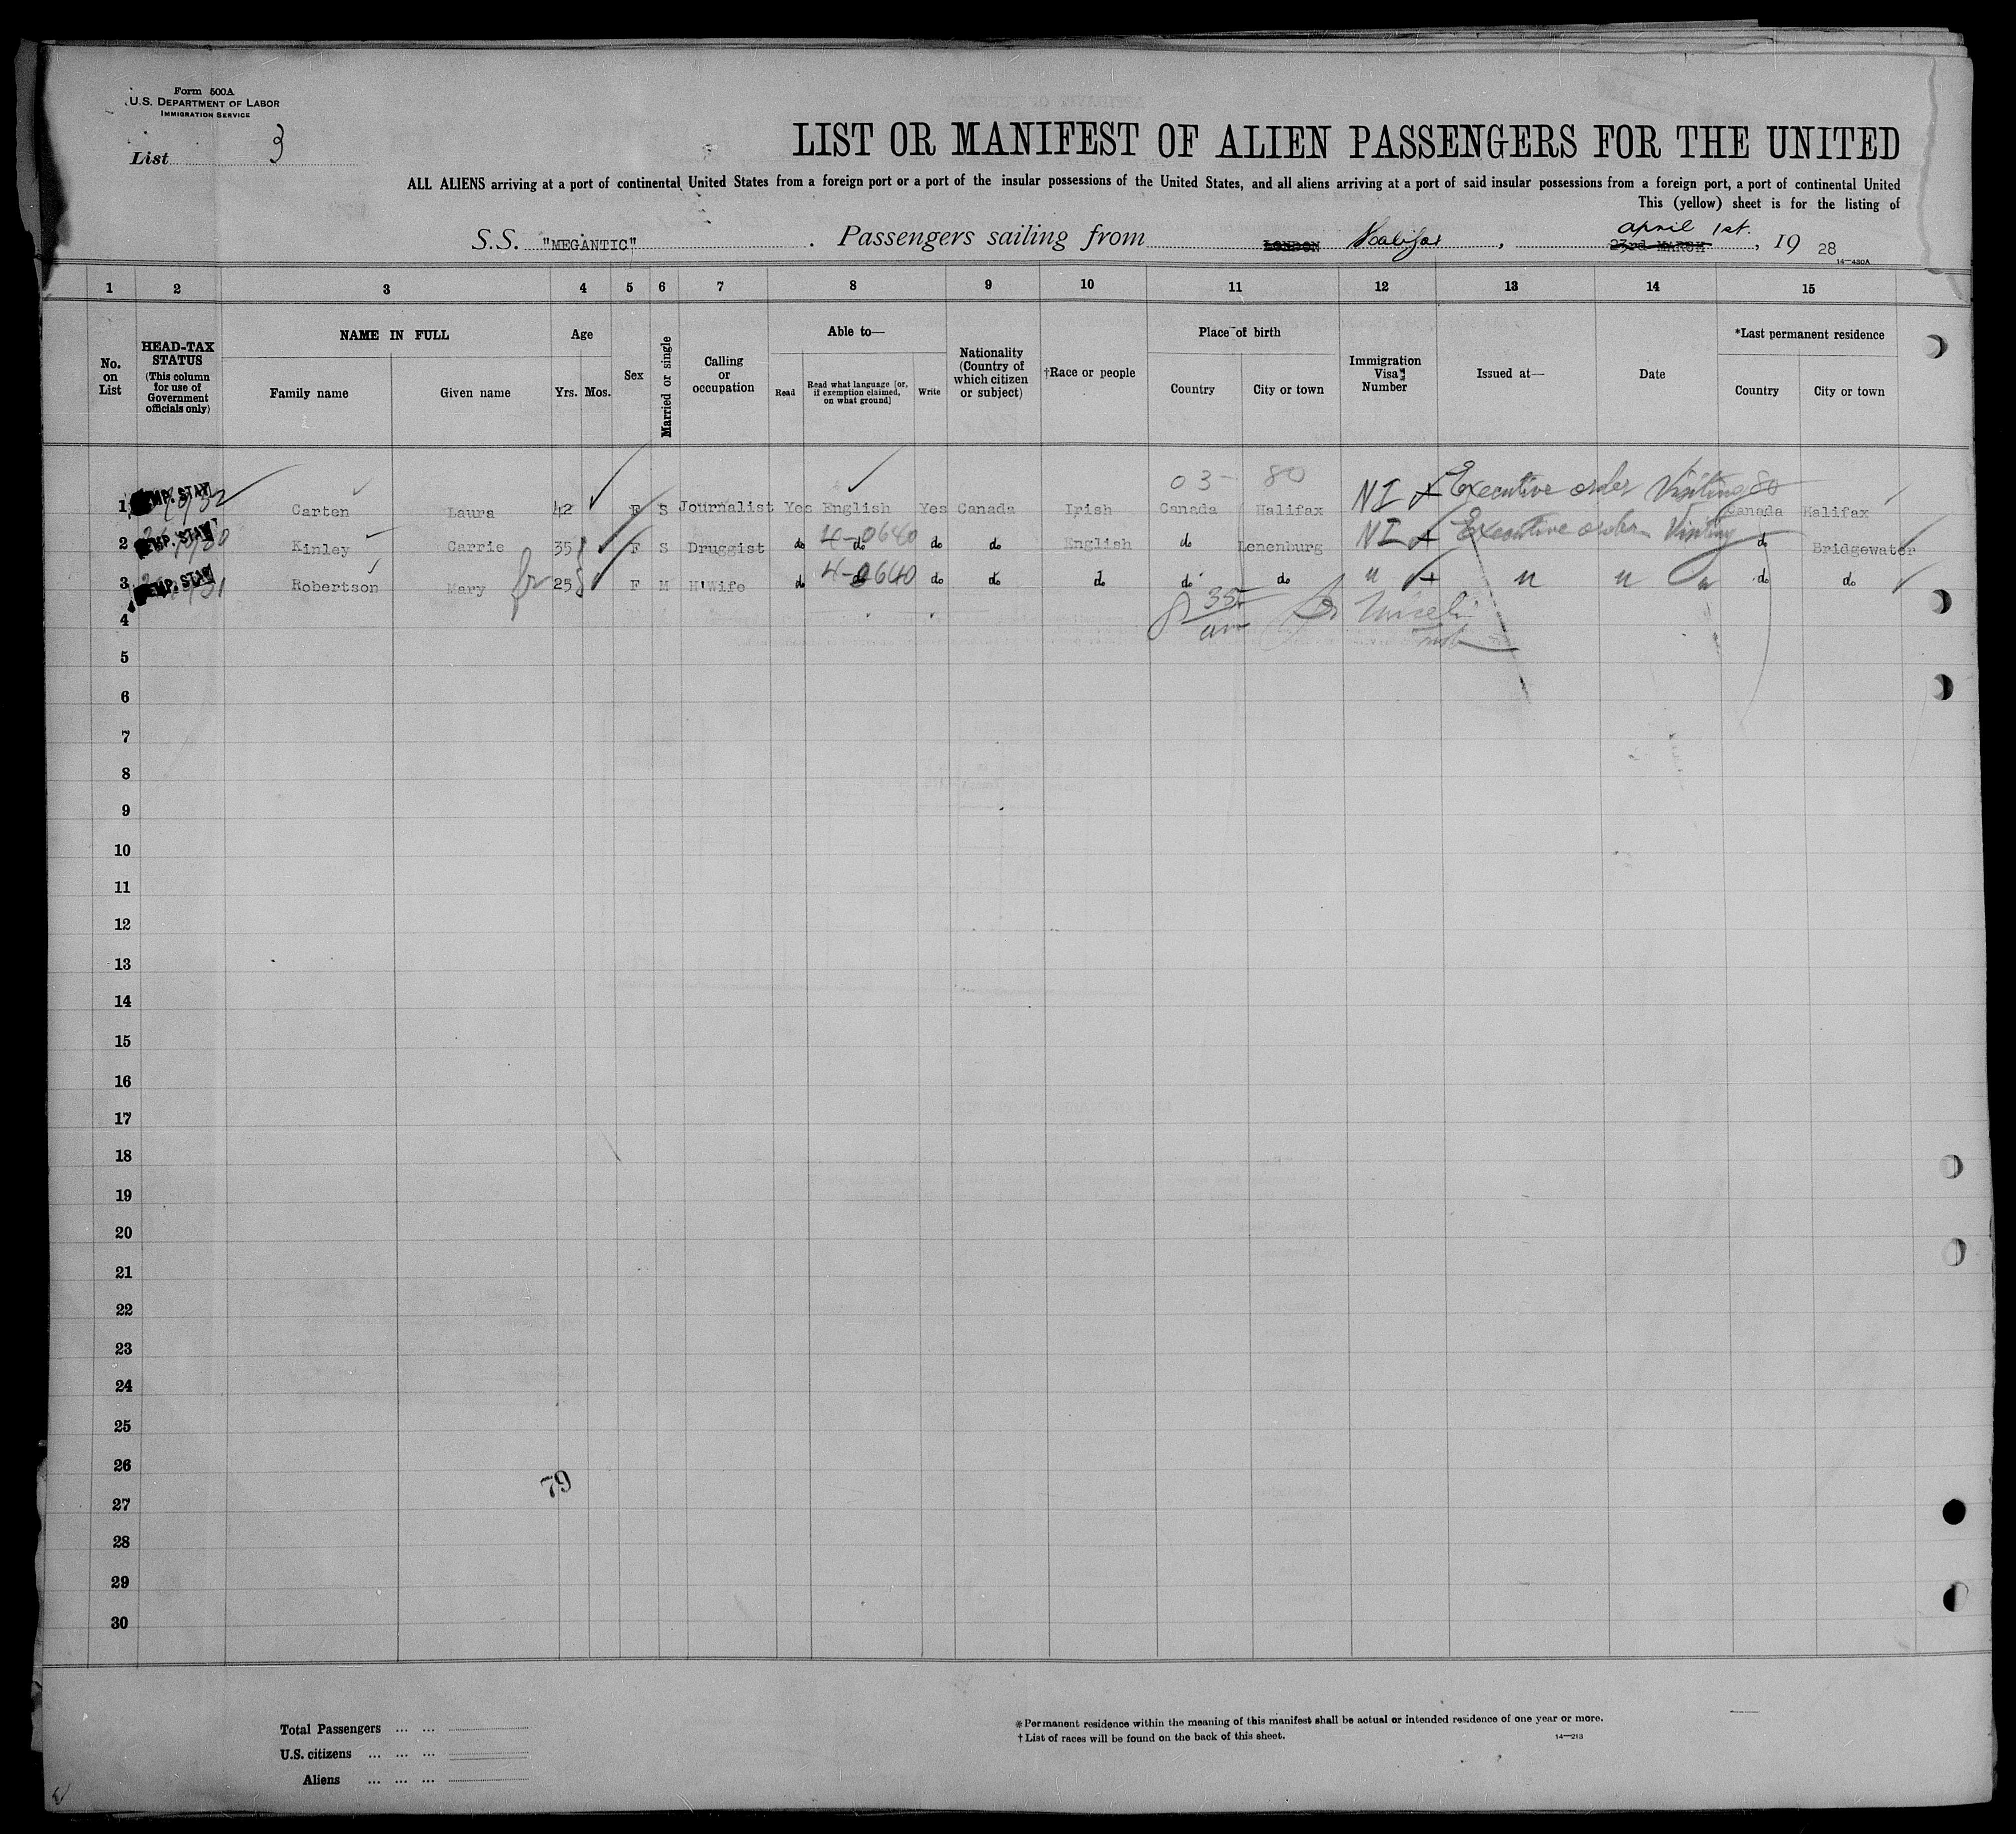 Form 500A
U.S. DEPARTMENT OF LABOR
IMMIGRATION SERVICE
List 3
LIST OR MANIFEST OF ALIEN PASSENGERS FOR THE UNITED
ALL ALIENS arriving at a port of continental United States from a foreign port or a port of the insular possessions of the United States, and all aliens arriving at a port of said insular possessions from a foreign port, a port of continental United
This (yellow) sheet is for the listing of
S.S. "MEGANTIC" . Passengers sailing from LONDON Halifax , 23rd MARCH april 1st. , 19 28
14—430A
1 2 3 4 5 6 7 8 9 10 11 12 13 14 15
No. on List
HEAD-TAX STATUS (This column for use of Government officials only)
NAME IN FULL
Family name Given name
Age
Yrs. Mos.
Sex
Married or single
Calling or occupation
Able to—
Read
Read what language [or, if exemption claimed, on what ground]
Write
Nationality (Country of which citizen or subject)
†Race or people
Place of birth
Country City or town
Immigration Visa Number
Issued at—
Date
*Last permanent residence
Country City or town
03- 80
1 Carten Laura 42 F S Journalist Yes English Yes Canada Irish Canada Halifax NI Executive order Visiting 80 Canada Halifax
2 Kinley Carrie 35 F S Druggist do 4-0640 do do do English do Lonenburg NI Executive order Visiting do Bridgewater
3 Robertson Mary 25 F M H'Wife do 4-0640 do do do do do do " " " " do do
4
5
6
7
8
9
10
11
12
13
14
15
16
17
18
19
20
21
22
23
24
25
26
79
27
28
29
30
Total Passengers ... ...
U.S. citizens ... ... ...
Aliens ... ... ...
*Permanent residence within the meaning of this manifest shall be actual or intended residence of one year or more.
†List of races will be found on the back of this sheet.
14—213